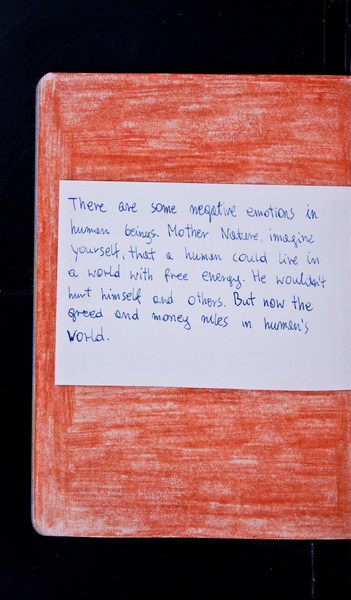 There are some negative emotions in
human beings. Mother Nature, imagine
yourself, that a human could live in
a world with free energy. He wouldn't
hurt himself and others. But now the
greed and money rules in human's
World.